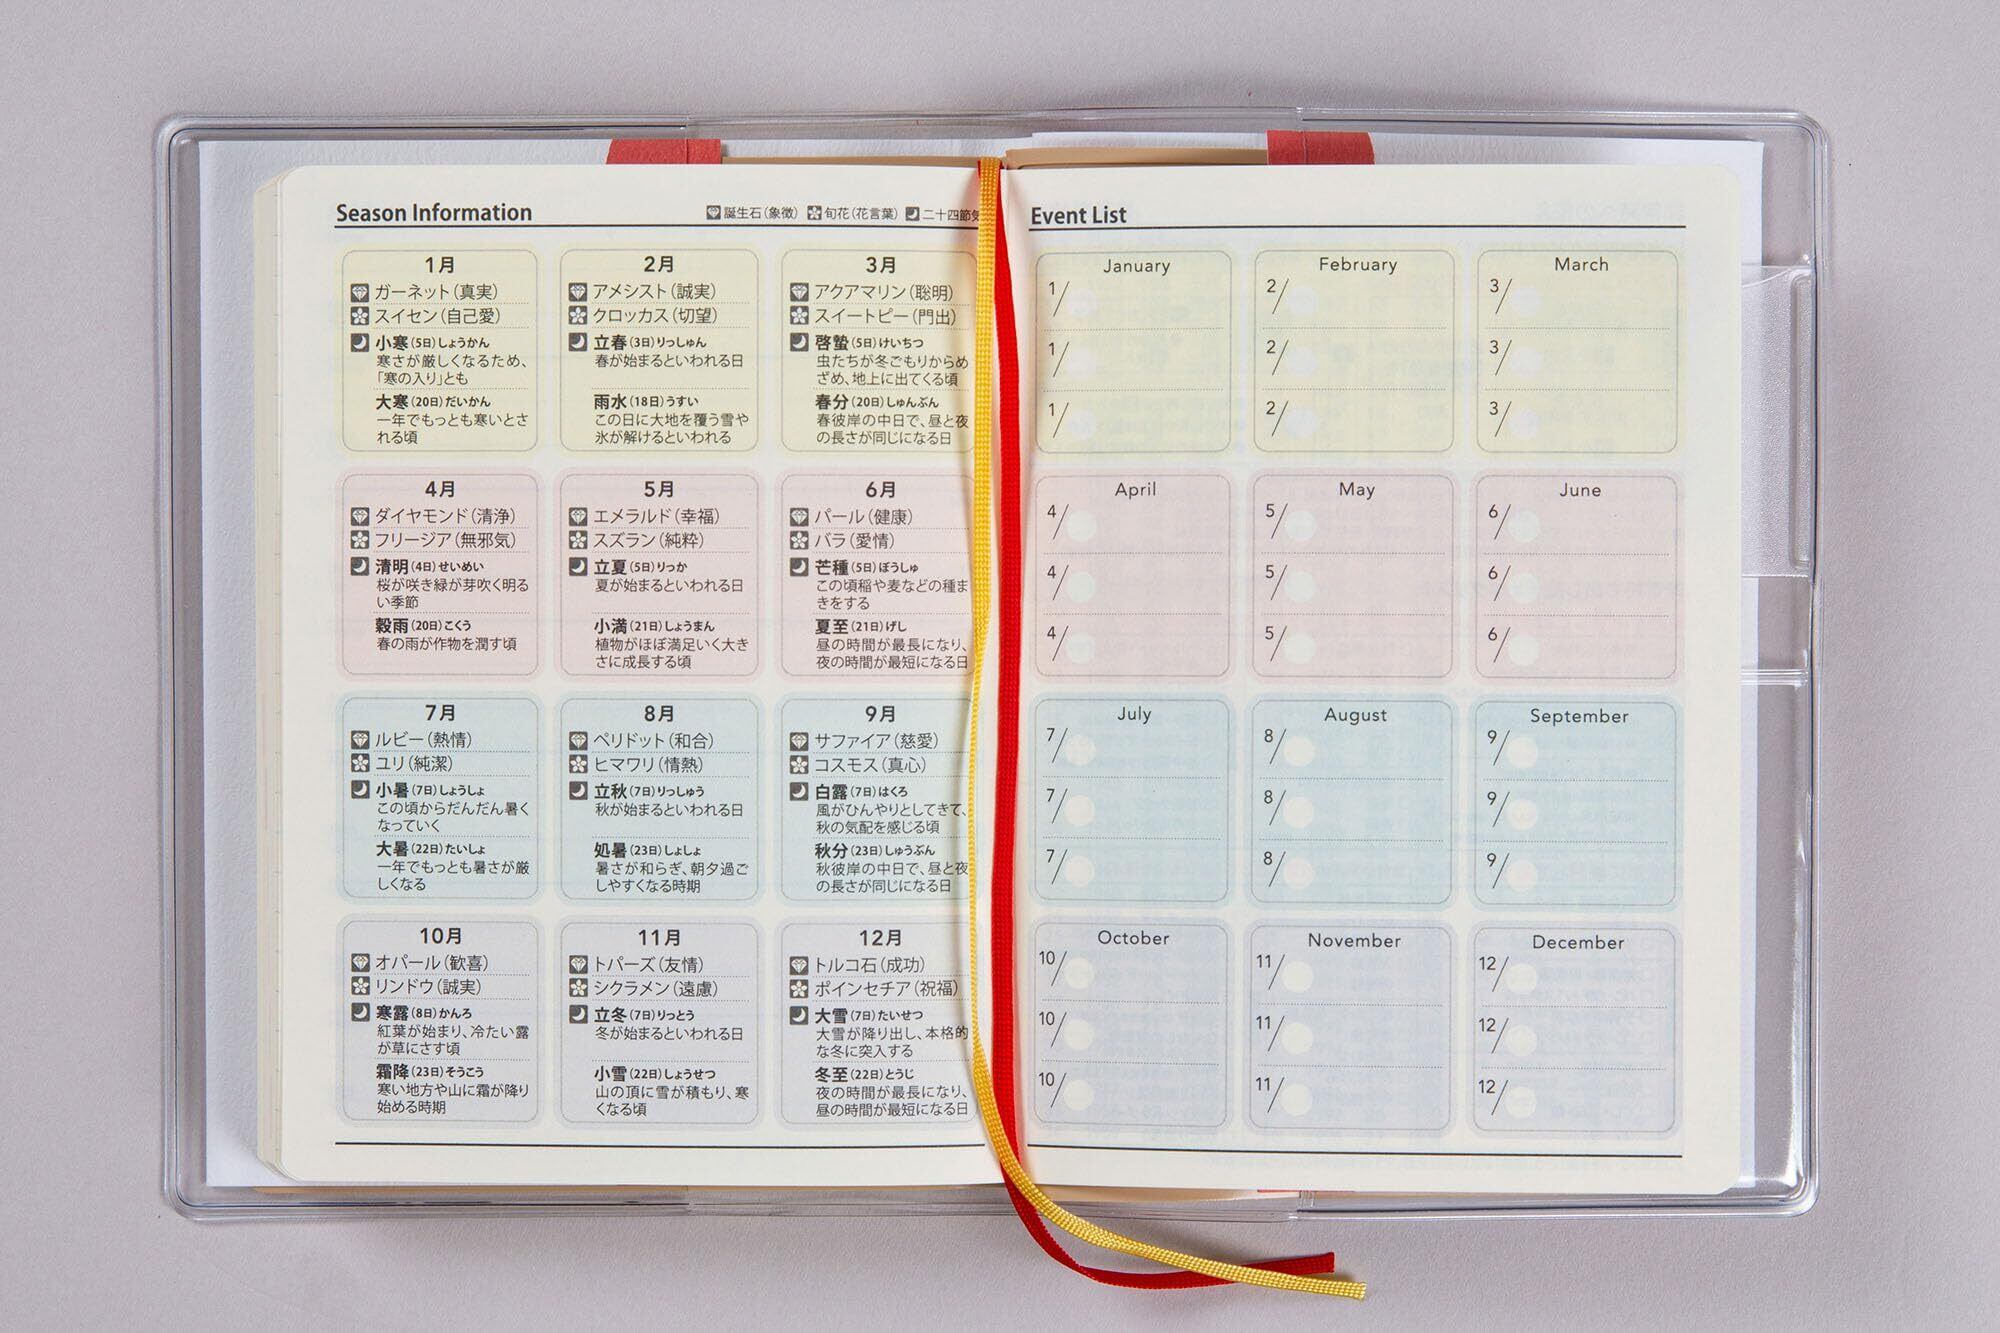 Season Information
誕生石（象徴） 旬花（花言葉） 二十四節気
1月
ガーネット（真実）
スイセン（自己愛）
小寒（5日）しょうかん
寒さが厳しくなるため、
「寒の入り」とも
大寒（20日）だいかん
一年でもっとも寒いとさ
れる頃
2月
アメシスト（誠実）
クロッカス（切望）
立春（3日）りっしゅん
春が始まるといわれる日
雨水（18日）うすい
この日に大地を覆う雪や
氷が解けるといわれる
3月
アクアマリン（聡明）
スイートピー（門出）
啓蟄（5日）けいちつ
虫たちが冬ごもりからめ
ざめ、地上に出てくる頃
春分（20日）しゅんぶん
春彼岸の中日で、昼と夜
の長さが同じになる日
4月
ダイヤモンド（清浄）
フリージア（無邪気）
清明（4日）せいめい
桜が咲き緑が芽吹く明る
い季節
穀雨（20日）こくう
春の雨が作物を潤す頃
5月
エメラルド（幸福）
スズラン（純粋）
立夏（5日）りっか
夏が始まるといわれる日
小満（21日）しょうまん
植物がほぼ満足いく大き
さに成長する頃
6月
パール（健康）
バラ（愛情）
芒種（5日）ぼうしゅ
この頃稲や麦などの種ま
きをする
夏至（21日）げし
昼の時間が最長になり、
夜の時間が最短になる日
7月
ルビー（熱情）
ユリ（純潔）
小暑（7日）しょうしょ
この頃からだんだん暑く
なっていく
大暑（22日）たいしょ
一年でもっとも暑さが厳
しくなる
8月
ペリドット（和合）
ヒマワリ（情熱）
立秋（7日）りっしゅう
秋が始まるといわれる日
処暑（23日）しょしょ
暑さが和らぎ、朝夕過ご
しやすくなる時期
9月
サファイア（慈愛）
コスモス（真心）
白露（7日）はくろ
風がひんやりとしてきて、
秋の気配を感じる頃
秋分（23日）しゅうぶん
秋彼岸の中日で、昼と夜
の長さが同じになる日
10月
オパール（歓喜）
リンドウ（誠実）
寒露（8日）かんろ
紅葉が始まり、冷たい露
が草にさす頃
霜降（23日）そうこう
寒い地方や山に霜が降り
始める時期
11月
トパーズ（友情）
シクラメン（遠慮）
立冬（7日）りっとう
冬が始まるといわれる日
小雪（22日）しょうせつ
山の頂に雪が積もり、寒
くなる頃
12月
トルコ石（成功）
ポインセチア（祝福）
大雪（7日）たいせつ
大雪が降り出し、本格的
な冬に突入する
冬至（22日）とうじ
夜の時間が最長になり、
昼の時間が最短になる日
Event List
January
1/
1/
1/
February
2/
2/
2/
March
3/
3/
3/
April
4/
4/
4/
May
5/
5/
5/
June
6/
6/
6/
July
7/
7/
7/
August
8/
8/
8/
September
9/
9/
9/
October
10/
10/
10/
November
11/
11/
11/
December
12/
12/
12/